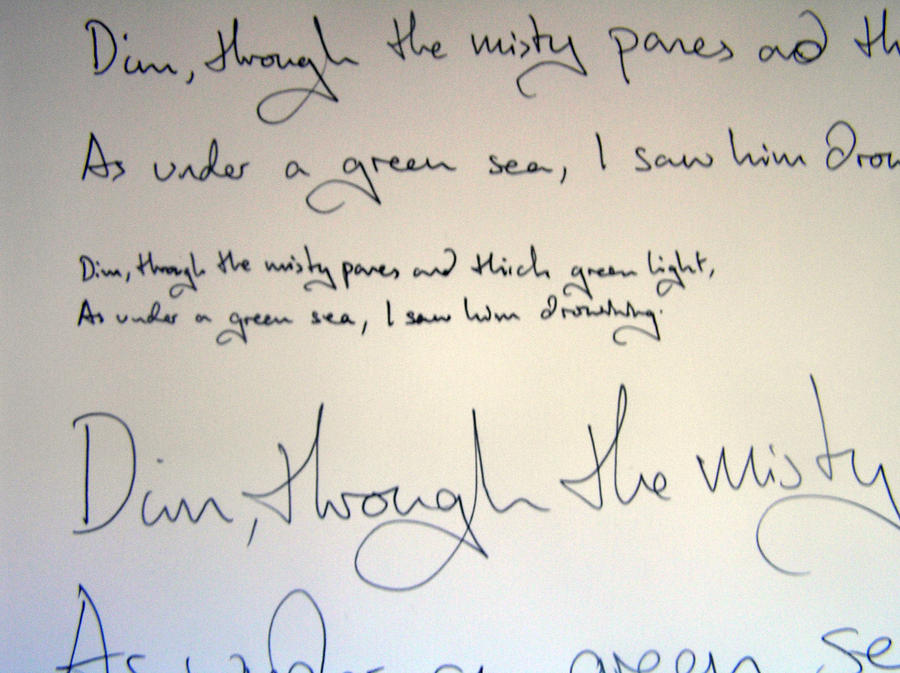 Dim, through the misty panes and th
As under a green sea, I saw him drow
Dim, through the misty panes and thick green light,
As under a green sea, I saw him drowning.
Dim, through the misty
As under a green se